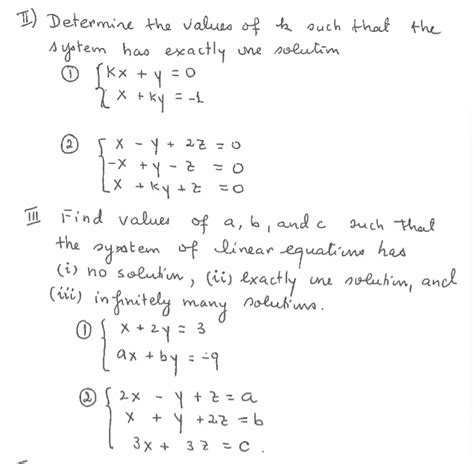 II) Determine the values of k such that the
system has exactly one solution
① { kx + y = 0
x + ky = -1
② { x - y + 2z = 0
-x + y - z = 0
x + ky + z = 0
III Find values of a, b, and c such that
the system of linear equations has
(i) no solution, (ii) exactly one solution, and
(iii) infinitely many solutions.
① { x + 2y = 3
ax + by = -9
② { 2x - y + z = a
x + y + 2z = b
3x + 3z = c.